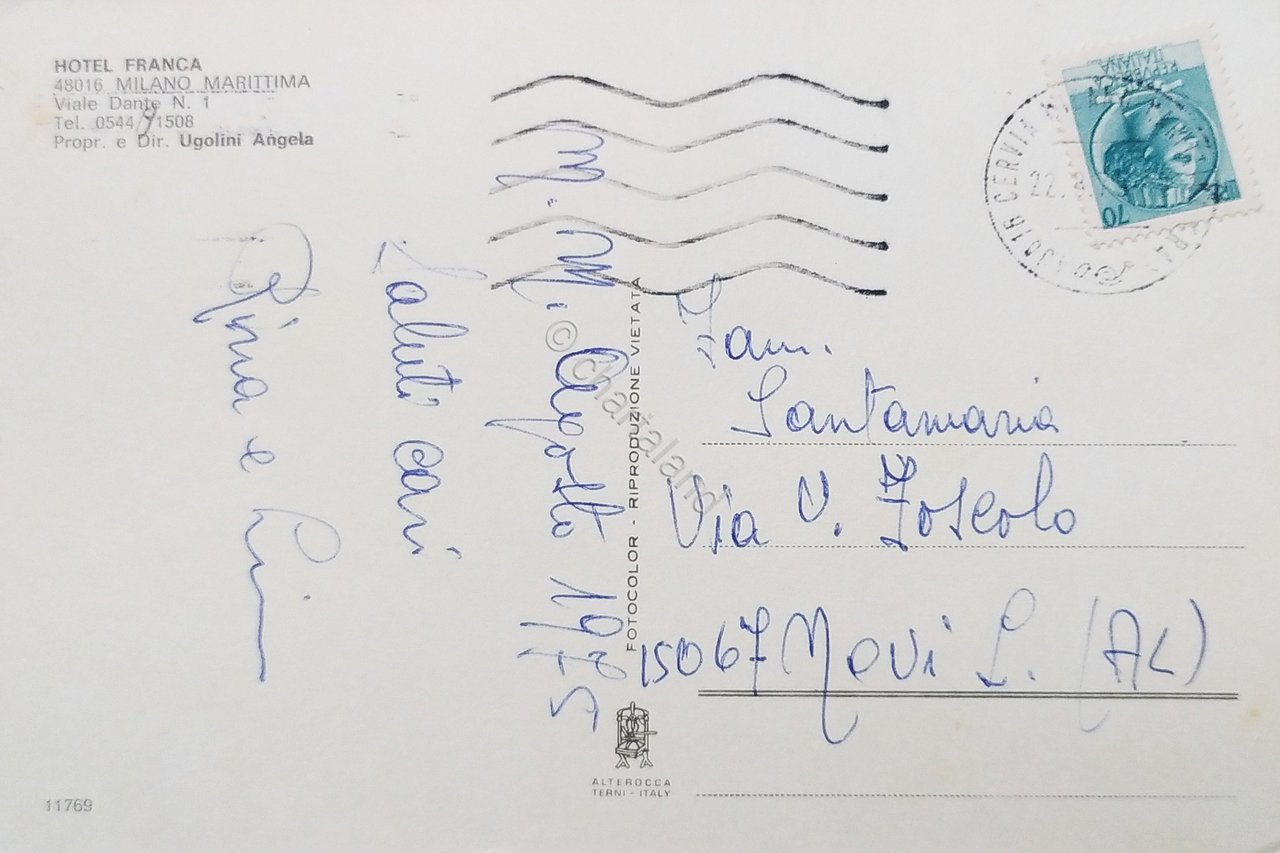 HOTEL FRANCA
48016 MILANO MARITTIMA
Viale Dante N. 1
Tel. 0544 91508
Propr. e Dir. Ugolini Angela
M. M. Agosto 1975
Saluti cari
Pina e
Fam.
Santamaria
Via U. Foscolo
15067 Novi L. (AL)
FOTOCOLOR - RIPRODUZIONE VIETATA
© chartaland
ALTEROCCA
TERNI - ITALY
11769
REPUBBLICA
ITALIANA
70
48016 CERVIA
22.